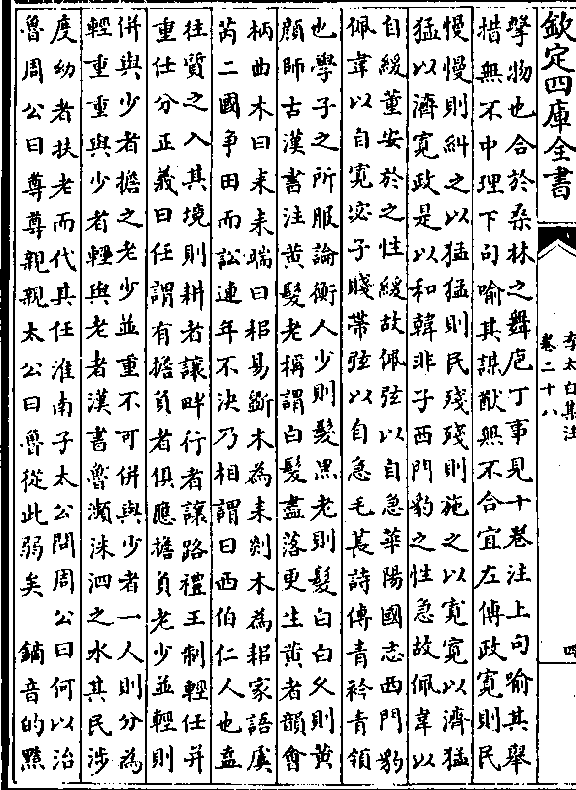 欽定四庫全書
李太白集注
卷二十八
四
聲物也合於桑林之舞庖丁事見十卷注上句喻其舉
措無不中理下句喻其謀猷無不合宜左傳政寛則民
慢慢則糾之以猛猛則民殘殘則施之以寛寛以濟猛
猛以濟寛政是以和韓非子西門豹之性急故佩韋以
自緩董安於之性緩故佩弦以自急華陽國志西門豹
佩韋以自寛宓子賤帶弦以自急毛萇詩傳青衿青領
也學子之所服論衡人少則髮黒老則髮白白久則黄
顔師古漢書注黄髮老稱謂白髮盡落更生黄者韻會
柄曲木曰耒耒端曰耜易斲木為耒剡木為耜家語虞
芮二國爭田而訟連年不決乃相謂曰西伯仁人也盍
往質之入其境則耕者讓畔行者讓路禮王制輕任并
重任分正義曰任謂有擔負者俱應擔負老少並輕則
併與少者擔之老少並重不可併與少者一人則分為
輕重重與少者輕與老者漢書魯瀕洙泗之水其民涉
度幼者扶老而代其任淮南子太公問周公曰何以治
魯周公曰尊尊親親太公曰魯從此弱矣　鏑音的黙